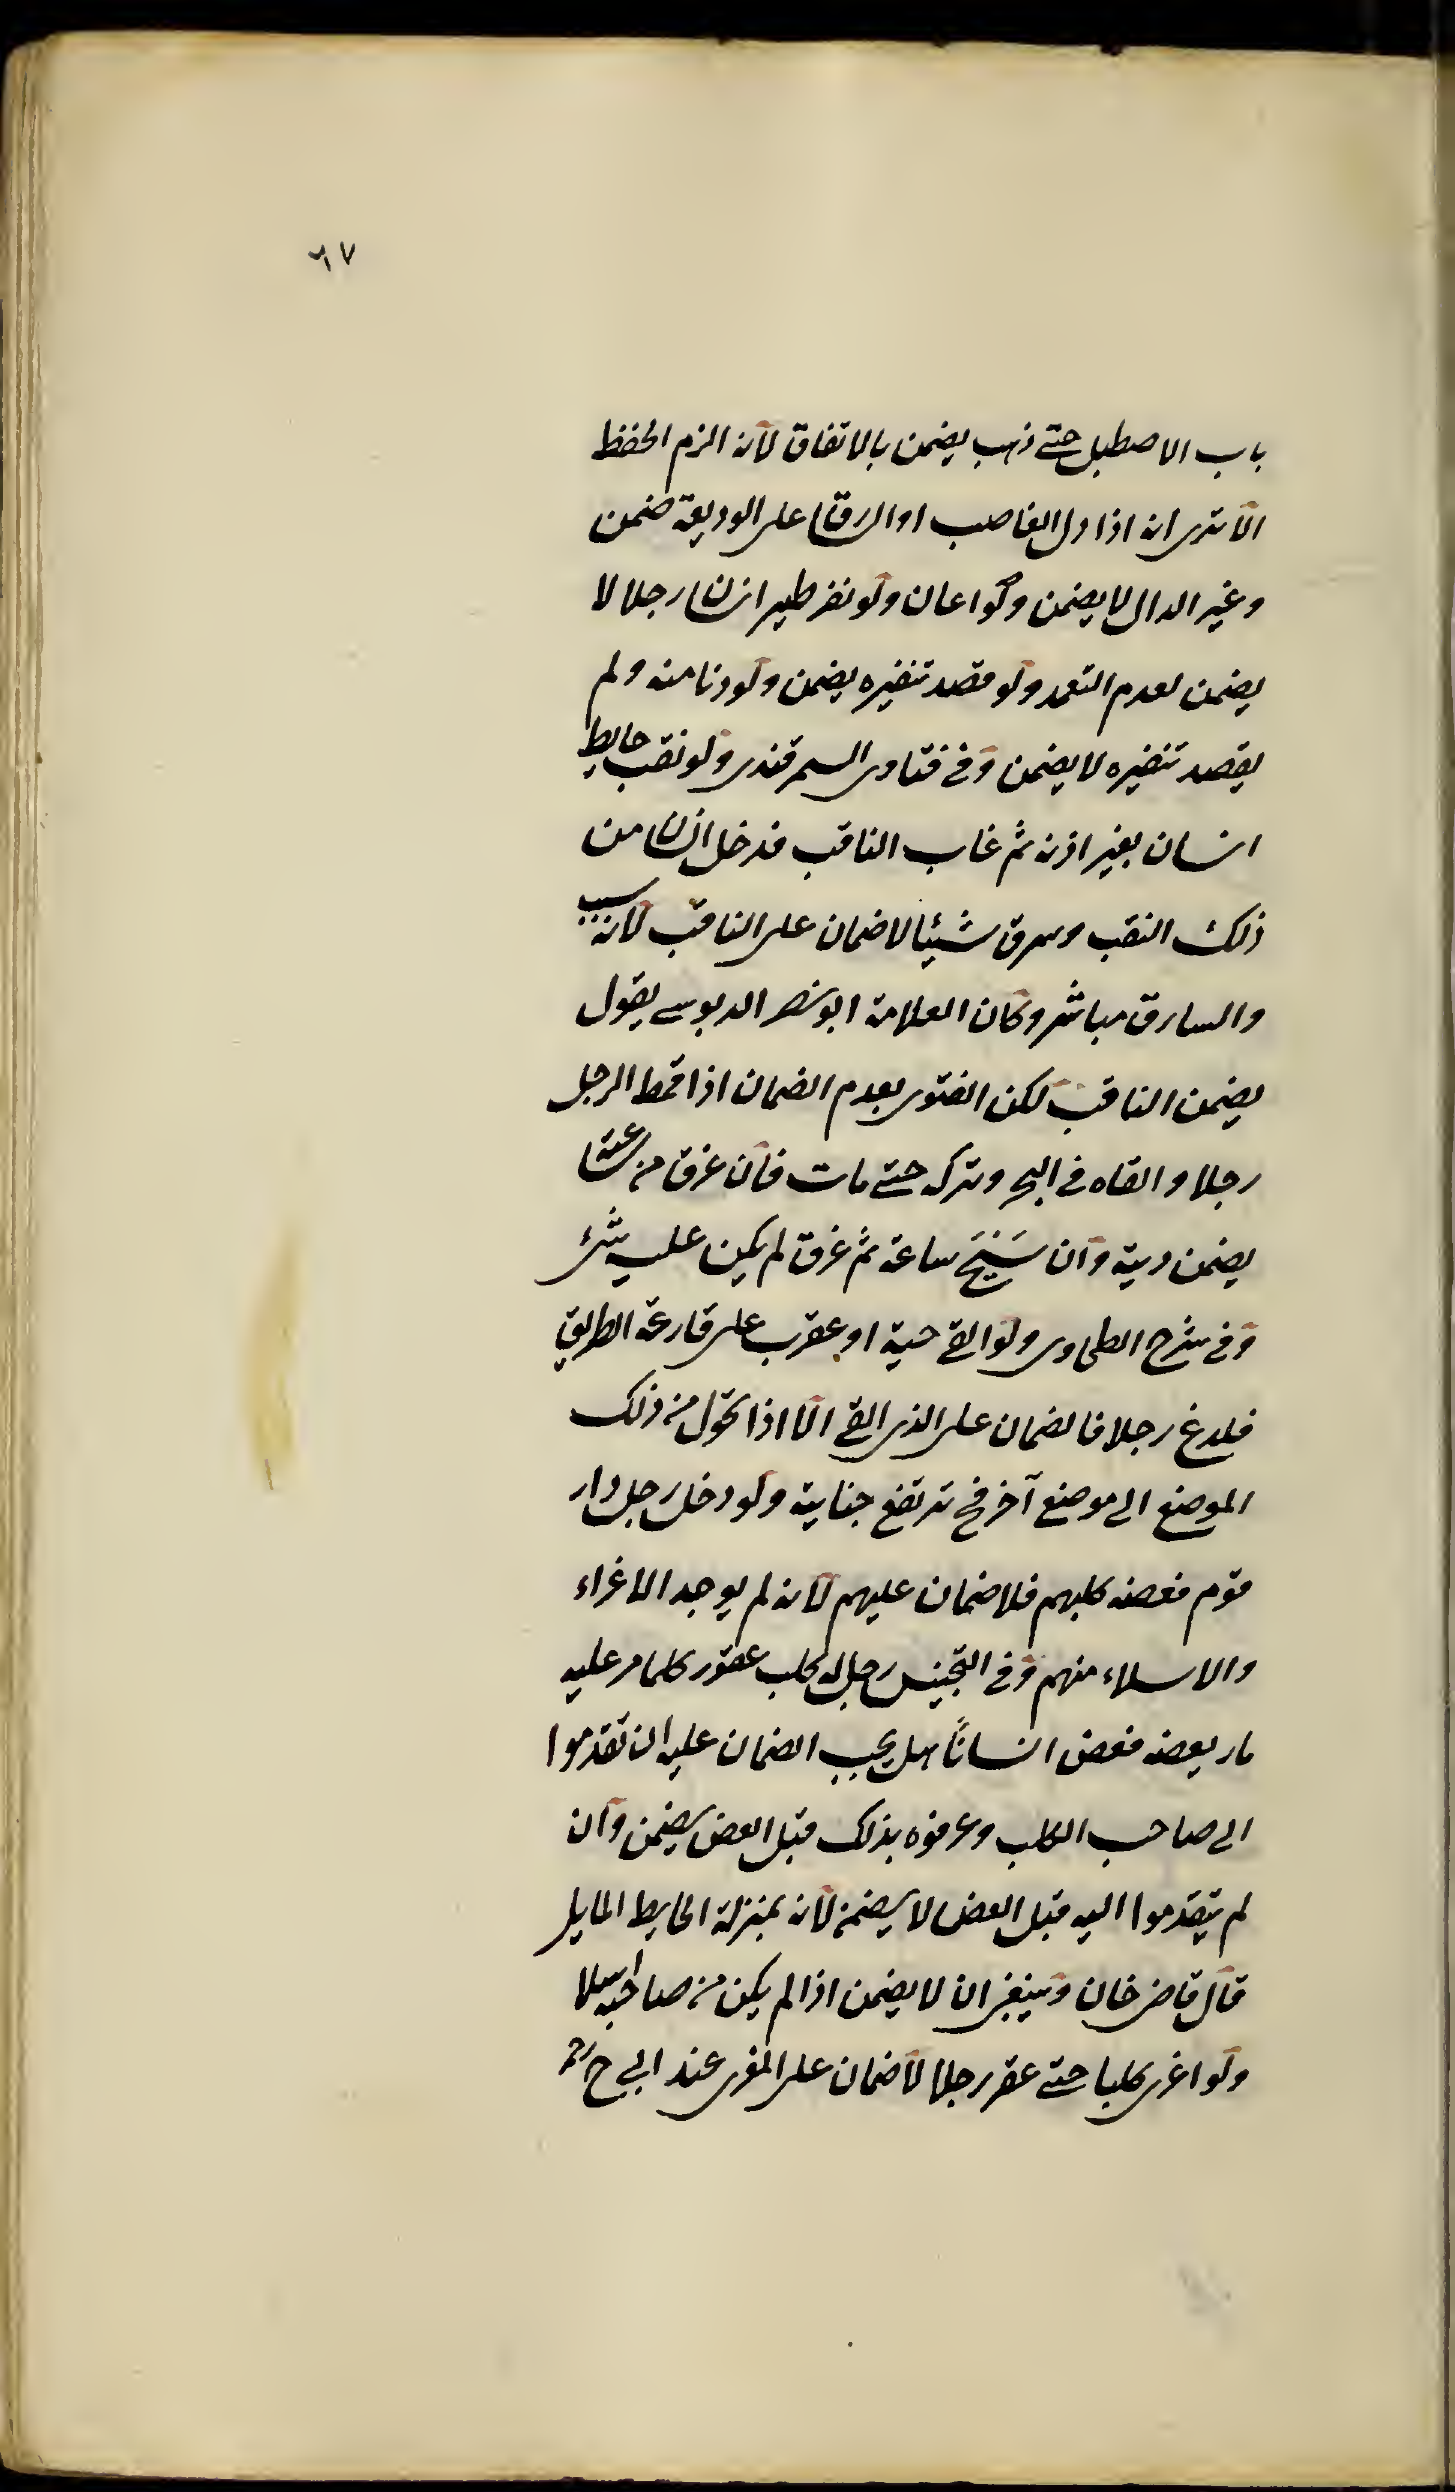 ٦٧
باب الاصطبل حتى ذهب يضمن بالاتفاق لانه الزم الحفظ
الا ترى انه اذا دل الغاصب او السراق على الوديعة ضمن
وغير الدال لا يضمن ولو اعان ولو نفر طير انسان رجلا لا
يضمن لعدم التعمد ولو قصد تنفيره يضمن ولو دنا منه ولم
يقصد تنفيره لا يضمن وفى فتاوى السمرقندى ولو نقب حايط
انسان بغير اذنه ثم غاب الناقب فدخل انسان من
ذلك النقب وسرق شيئا لا ضمان على الناقب لانه سبب
والسارق مباشر وكان العلامة ابو نصر الدبوسى يقول
يضمن الناقب لكن الفتوى بعدم الضمان اذا قمط الرجل
رجلا والقاه فى البحر وتركه حتى مات فان غرق من ساعته
يضمن دية وان سَبَحَ ساعة ثم غرق لم يكن عليه شئ
وفى شرح الطحاوى ولو القى حية او عقرب على قارعة الطريق
فلدغ رجلا فالضمان على الذى القى الا اذا تحول من ذلك
الموضع الى موضع آخر فح ترتفع جناية ولو دخل رجل دار
قوم فعضه كلبهم فلا ضمان عليهم لانه لم يوجد الاغراء
والاسلاء منهم وفى التجنيس رجل له كلب عقور كلما مر عليه
مار يعضه فعض انسانًا هل يجب الضمان عليه ان تقدموا
الى صاحب الكلب وعرفوه بذلك قبل العض يضمن وان
لم يتقدموا اليه قبل العض لا يضمن لانه بمنزلة الحايط المايل
قال قاضى خان وينبغى ان لا يضمن اذا لم يكن من صاحبه اسلا
ولو اغرى كلبا حتى عقر رجلا لا ضمان على المغرى عند ابى ح رح